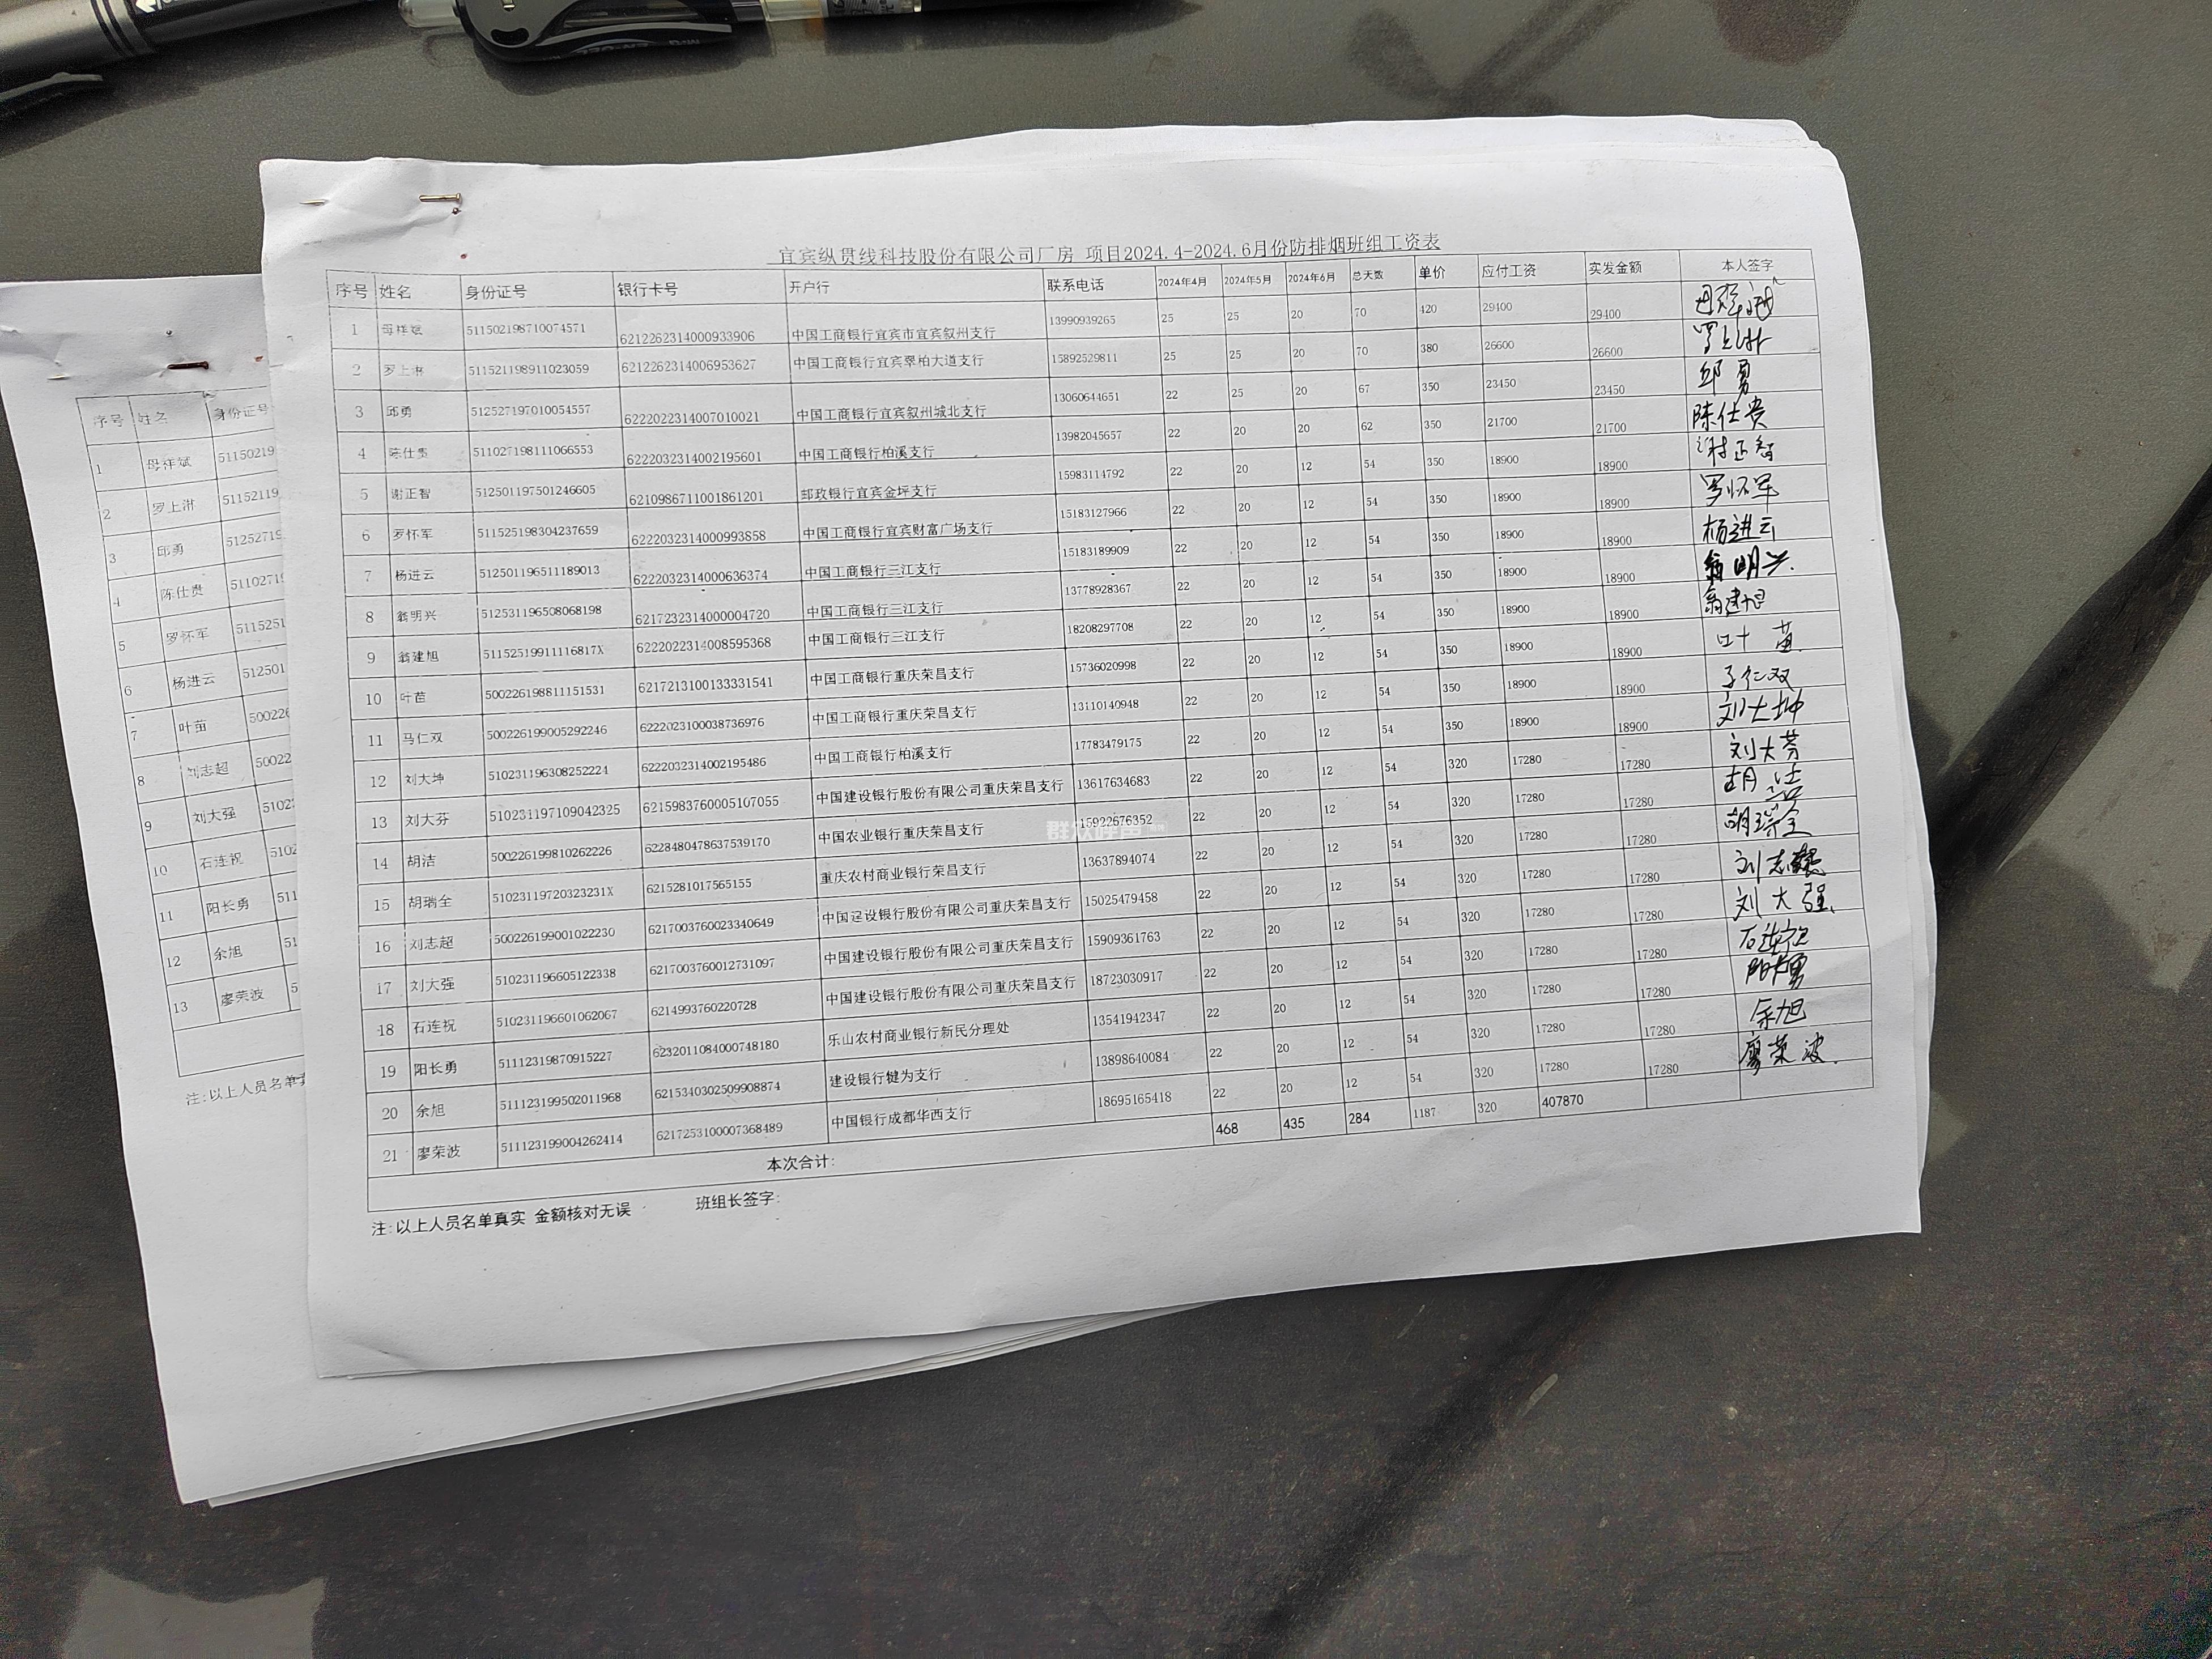 宜宾纵贯线科技股份有限公司厂房 项目2024.4-2024.6月份防排烟班组工资表
序号 姓名 身份证号 银行卡号 开户行 联系电话 2024年4月 2024年5月 2024年6月 总天数 单价 应付工资 实发金额 本人签字
1 母祥斌 511502198710074571 6212262314000933906 中国工商银行宜宾市宜宾叙州支行 13990939265 25 25 20 70 420 29400 29400
2 罗上淋 511521198911023059 6212262314006953627 中国工商银行宜宾翠柏大道支行 15892529811 25 25 20 70 380 26600 26600 罗上淋
3 邱勇 512527197010054557 6222022314007010021 中国工商银行宜宾叙州城北支行 13060644651 22 25 20 67 350 23450 23450 邱勇
4 陈仕贵 511027198111066553 6222032314002195601 中国工商银行柏溪支行 13982045657 22 20 20 62 350 21700 21700 陈仕贵
5 谢正智 512501197501246605 6210986711001861201 邮政银行宜宾金坪支行 15983114792 22 20 12 54 350 18900 18900 谢正智
6 罗怀军 511525198304237659 6222032314000993858 中国工商银行宜宾财富广场支行 15183127966 22 20 12 54 350 18900 18900 罗怀军
7 杨进云 512501196511189013 6222032314000636374 中国工商银行三江支行 15183189909 22 20 12 54 350 18900 18900 杨进云
8 翁明兴 512531196508068198 6217232314000004720 中国工商银行三江支行 13778928367 22 20 12 54 350 18900 18900 翁明兴
9 翁建旭 51152519911116817X 6222022314008595368 中国工商银行三江支行 18208297708 22 20 12 54 350 18900 18900 翁建旭
10 叶苗 500226198811151531 6217213100133331541 中国工商银行重庆荣昌支行 15736020998 22 20 12 54 350 18900 18900 叶苗
11 马仁双 500226199005292246 6222023100038736976 中国工商银行重庆荣昌支行 13110140948 22 20 12 54 350 18900 18900 马仁双
12 刘大坤 510231196308252224 6222032314002195486 中国工商银行柏溪支行 17783479175 22 20 12 54 350 18900 18900 刘大坤
13 刘大芬 510231197109042325 6215983760005107055 中国建设银行股份有限公司重庆荣昌支行 13617634683 22 20 12 54 320 17280 17280 刘大芬
14 胡洁 500226199810262226 6228480478637539170 中国农业银行重庆荣昌支行 15922676352 22 20 12 54 320 17280 17280 胡洁
15 胡瑞全 51023119720323231X 6215281017565155 重庆农村商业银行荣昌支行 13637894074 22 20 12 54 320 17280 17280 胡瑞全
16 刘志超 500226199001022230 6217003760023340649 中国建设银行股份有限公司重庆荣昌支行 15025479458 22 20 12 54 320 17280 17280 刘志超
17 刘大强 510231196605122338 6217003760012731097 中国建设银行股份有限公司重庆荣昌支行 15909361763 22 20 12 54 320 17280 17280 刘大强
18 石连祝 510231196601062067 6214993760220728 中国建设银行股份有限公司重庆荣昌支行 18723030917 22 20 12 54 320 17280 17280 石连祝
19 阳长勇 51112319870915227 6232011084000748180 乐山农村商业银行新民分理处 13541942347 22 20 12 54 320 17280 17280 阳长勇
20 余旭 511123199502011968 6215340302509908874 建设银行犍为支行 13898640084 22 20 12 54 320 17280 17280 余旭
21 廖荣波 511123199004262414 6217253100007368489 中国银行成都华西支行 18695165418 22 20 12 54 320 17280 17280 廖荣波
本次合计: 468 435 284 1187 320 407870
注:以上人员名单真实 金额核对无误 班组长签字:
群众呼声
序号 姓名 身份证号
1 母祥斌 51150219
2 罗上淋 51152119
3 邱勇 51252719
4 陈仕贵 51102719
5 罗怀军 5115251
6 杨进云 512501
7 叶苗 50022
8 刘志超 50022
9 刘大强 5102
10 石连祝 5102
11 阳长勇 511
12 余旭 51
13 廖荣波 5
注:以上人员名单